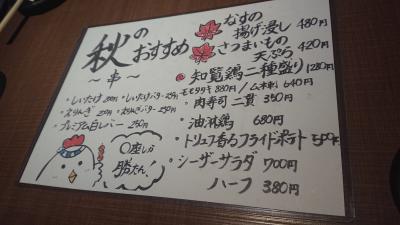 秋のおすすめ
~串~
・しいたけ 200円 ・しいたけバター 250円
・えりんぎ 200円 ・えりんぎバター 250円
・プレミアム白レバー 250円
○座しか勝たん!
なすの揚げ浸し 480円
さつまいもの天ぷら 420円
知覧鶏二種盛り 1280円
モモタタキ 880円 / ムネ刺し 640円
・肉寿司二貫 350円
・油淋鶏 680円
・トリュフ香るフライドポテト 500円
・シーザーサラダ 700円
ハーフ 380円